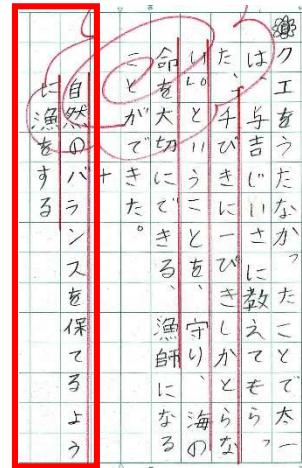 クエをうたなかったことで太一
は、与吉じいさに教えてもらっ
た、千びきに一ぴきしかとらな
い。ということを、守り、海の
命を大切にできる、漁師になる
ことができた。
+
自然のバランスを保てるよう
に漁をする